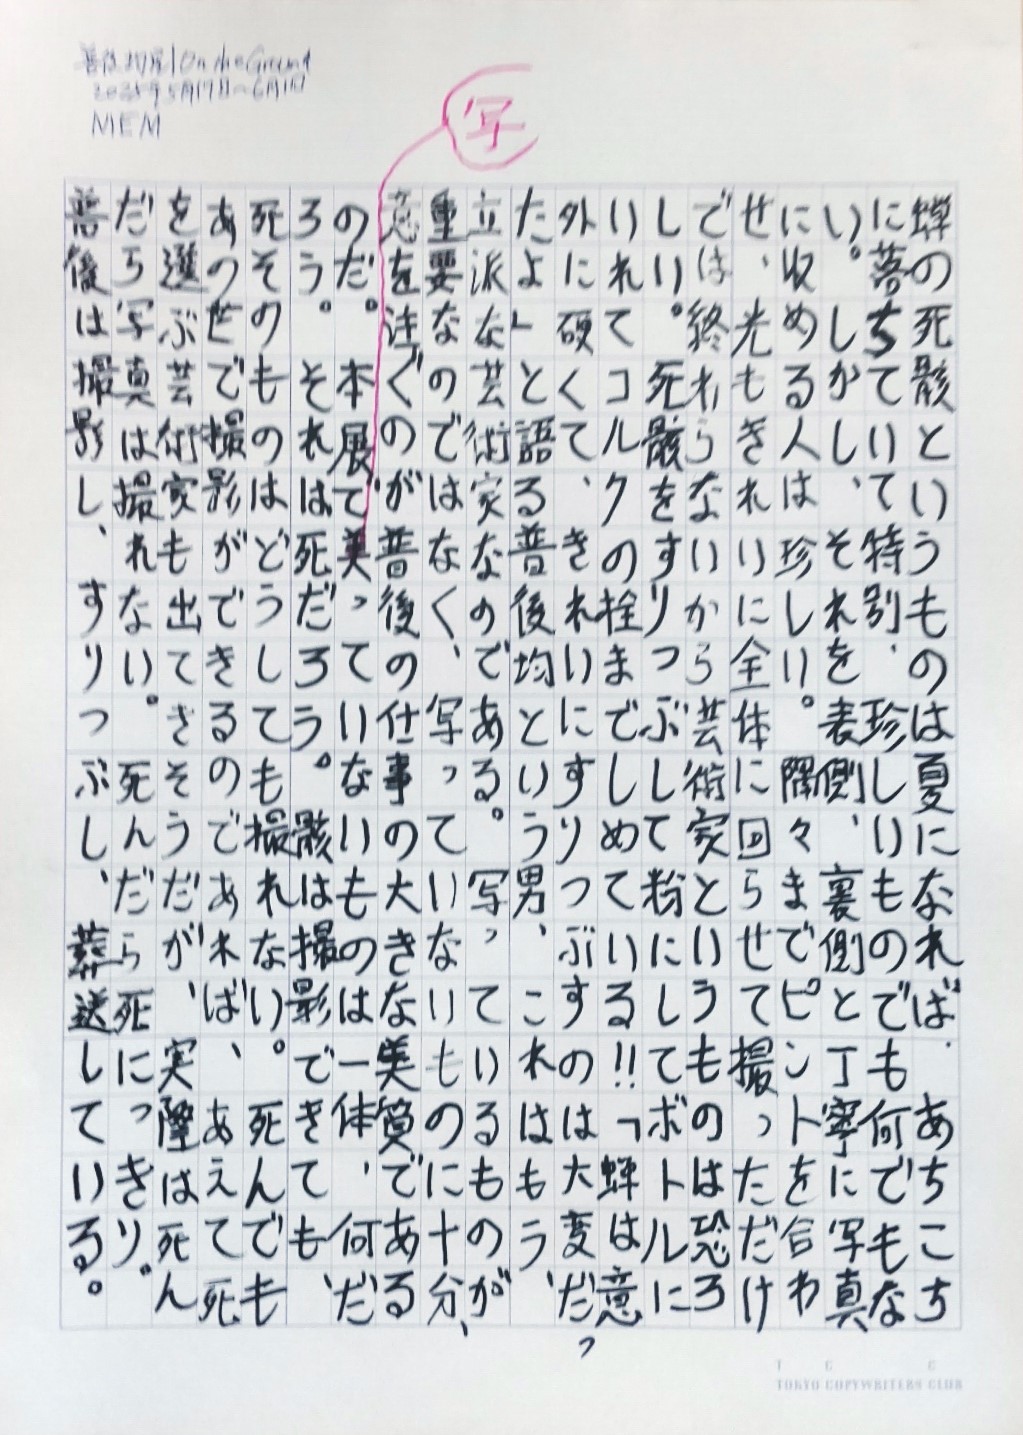 普後均展|On the Ground
2025年5月17日〜6月1日
MEM
写
蝉の死骸というものは夏になれば、あちこち
に落ちていて特別、珍しいものでも何でもな
い。しかし、それを表側、裏側と丁寧に写真
に収める人は珍しい。隅々までピントを合わ
せ、光もきれいに全体に回らせて撮っただけ
では終わらないから芸術家というものは恐ろ
しい。死骸をすりつぶして粉にしてボトルに
いれてコルクの栓までしめている!!「蝉は意
外に硬くて、きれいにすりつぶすのは大変だっ
たよ」と語る普後均という男、これはもう、
立派な芸術家なのである。写っているものが
重要なのではなく、写っていないものに十分、
意を注ぐのが普後の仕事の大きな美質である
のだ。本展で美っていないものは一体、何だ
ろう。それは死だろう。骸は撮影できても、
死そのものはどうしても撮れない。死んでも
あの世で撮影ができるのであれば、あえて死
を選ぶ芸術家も出てきそうだが、実際は死ん
だら写真は撮れない。死んだら死にっきり。
普後は撮影し、すりつぶし、葬送している。
T C C
TOKYO COPYWRITERS CLUB